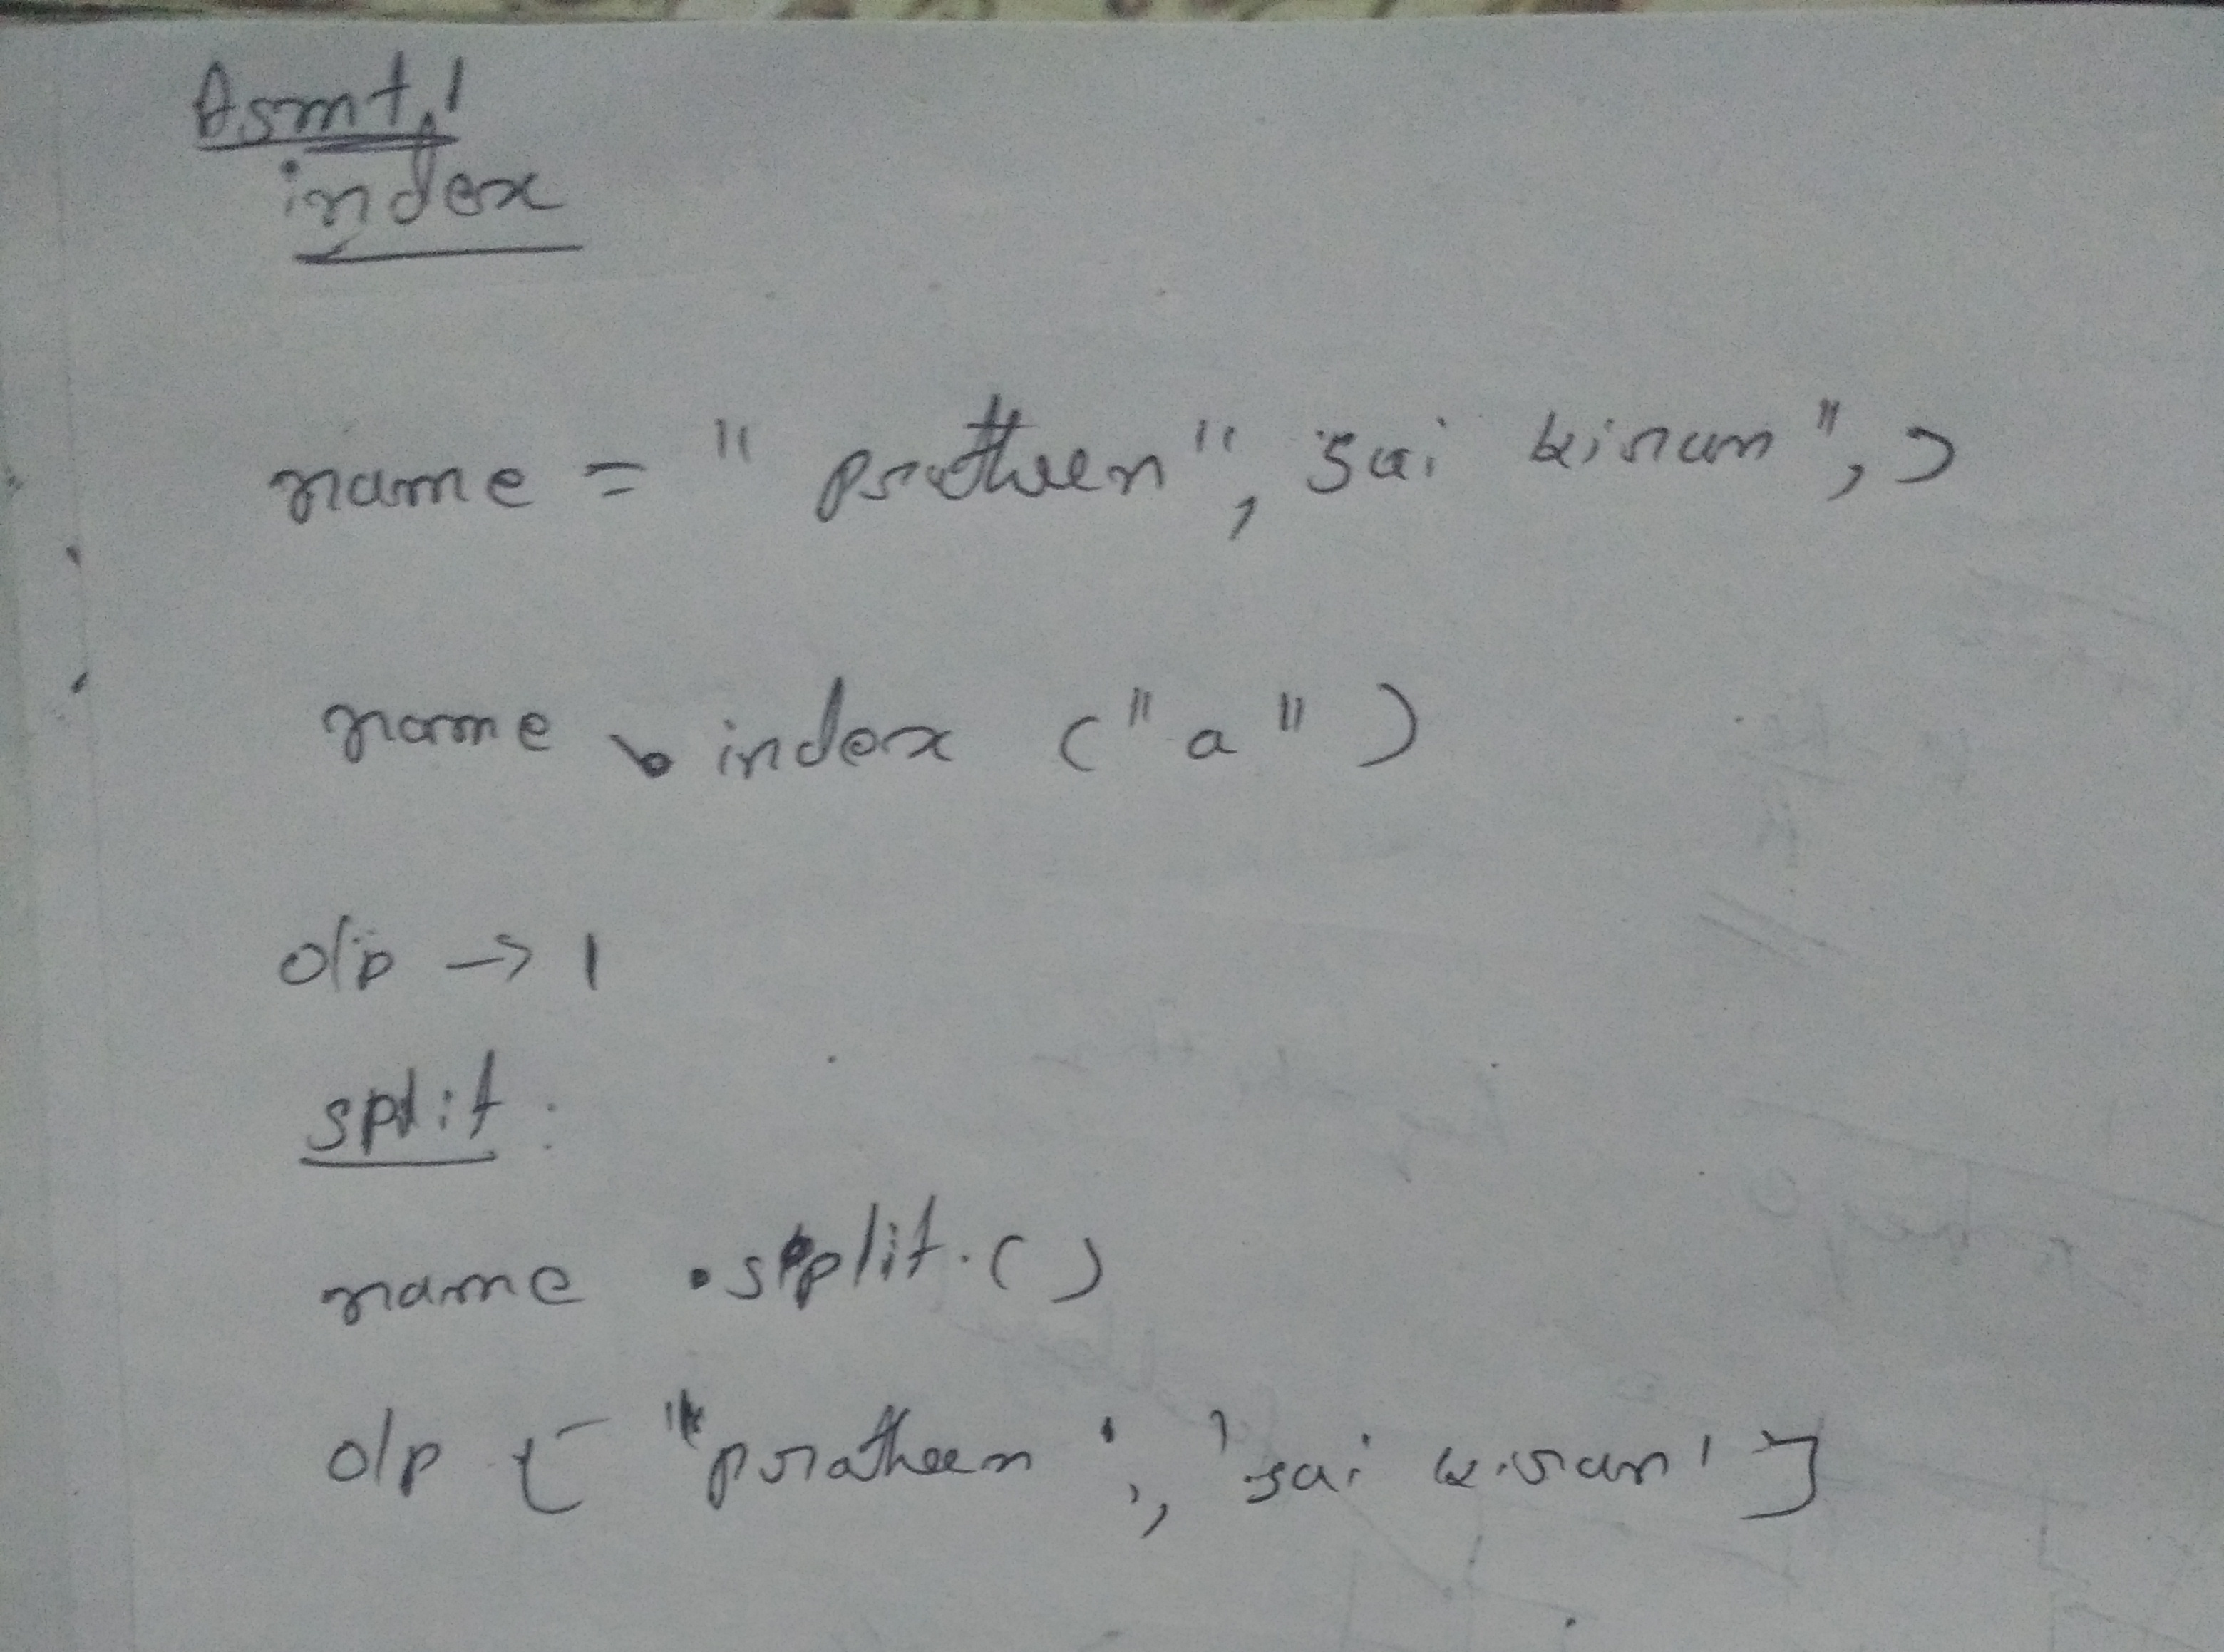 Asmt.1
index
name = " pratheen", sai kiran", )
name . index ("a")
o/p → 1
split :
name .split.()
o/p [ "pratheen ', 'sai kiran' ]